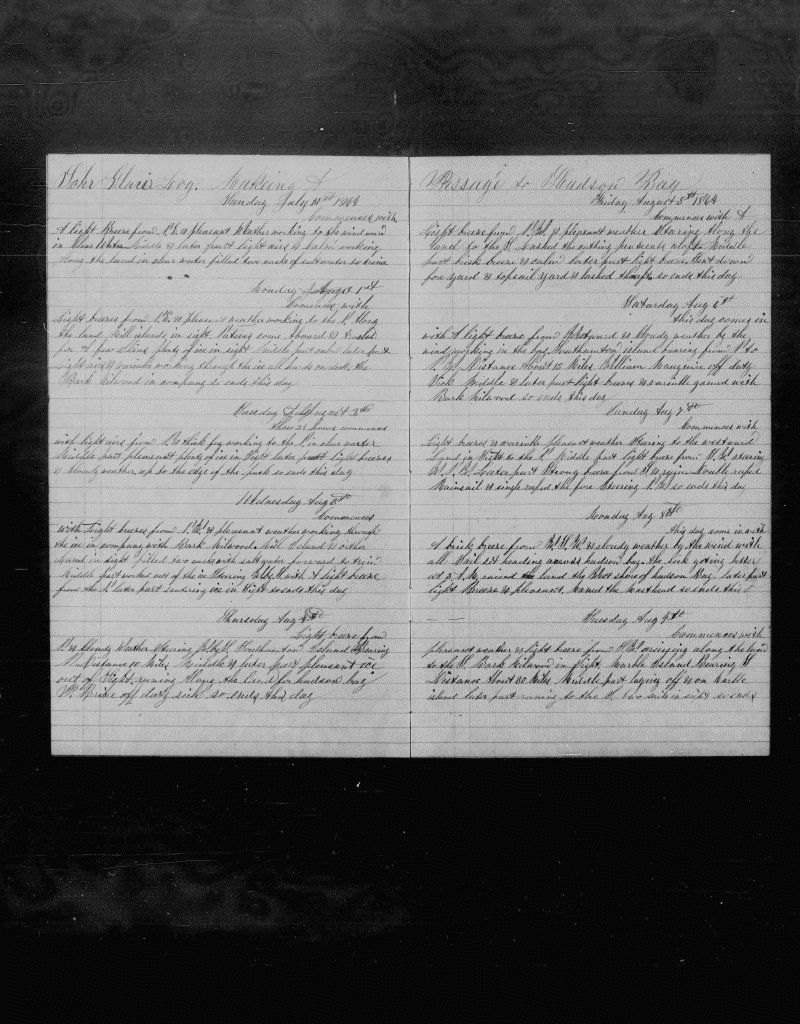 Log. Making A
Sunday July 31st 1864
Commences with
A light Breeze from N.E. & pleasant Weather working to the wind ward
in Clear Water Middle & later part light airs & calm working
Along the land in clear water filled two casks of salt water to trim
Monday Aug 1st
Comences with
Light breezes from N.E. & pleasant weather working to the N. Along
the land Mill islands in sight Natives come aboard &
for A few Skins plenty of ice in sight Middle part calm later part
Light airs & variable working through the ice all hands on deck the
Bark Milwood in company so ends this day
Tuesday August 2nd
These 24 hours commences
with light airs from N.E. thick fog working to the N. in clear water
Middle part pleasant plenty of ice in Sight later part light breezes
& cloudy weather up to the edge of the pack so ends this day
Wednesday Aug 3rd
Commences
With Light breezes from N.W. & pleasant weather working through
the ice in company with Bark Milwood Mill Island & other
island in sight filled two casks with salt water forward to trim
Middle part worked out of the ice Steering S.W. with A light breeze
from the N. later part entering ice in Sight so ends this day
Thursday Aug 4th
Light breeze from
N. & Cloudy Weather Stering Southamton Island Bearing
N. Distance 10 Miles Middle & later part pleasant ice
out of Sight runing Along the land for hudson bay
Wm Brine off duty sick so ends this day
Passage to Hudson Bay
Friday August 5th 1864
Commences with A
Light breeze from N.W. & pleasant weather Staring Along the
land to the W. washed the cutting Middle
part brick breeze & calm later part light breeze Sent down
fore yard & topsail yard & lashed them so ends this day
Saturday Aug 6th
This day comes in
with A light breeze from Westward & cloudy weather by the
wind working in the bay Southamton island bearing from N to
N.W. Distance About 15 Miles William off duty
Sick Middle & later part light breeze & variable gamed with
Bark Milwood so ends this day
Sunday Aug 7th
Commences with
Light breezes & variable pleasant weather Steering to the westward
Land in Sight to the N. Middle part light breeze from steering
Later part Strong breeze from S & rain Double reefed
Mainsail & single reefed the fore Steering N.W. so ends this day
Monday Aug 8th
This day come in with
A brick breeze from W.S.W. & cloudy weather by the wind with
all Sail set heading across hudson bay the sick geting better
at 3 A.M. raised the land the West shore of hudson Bay later part
light Breeze & pleasant. so ends this
Tuesday Aug 9th
Commences with
pleasant weather & light breeze from S.W. cruising along the land
to the W. Bark Milwood in sight, Marble Island Bearing W
Distance About 30 Miles Middle part laying off & on Marble
island later part runing to the W. two sails in sight so ends